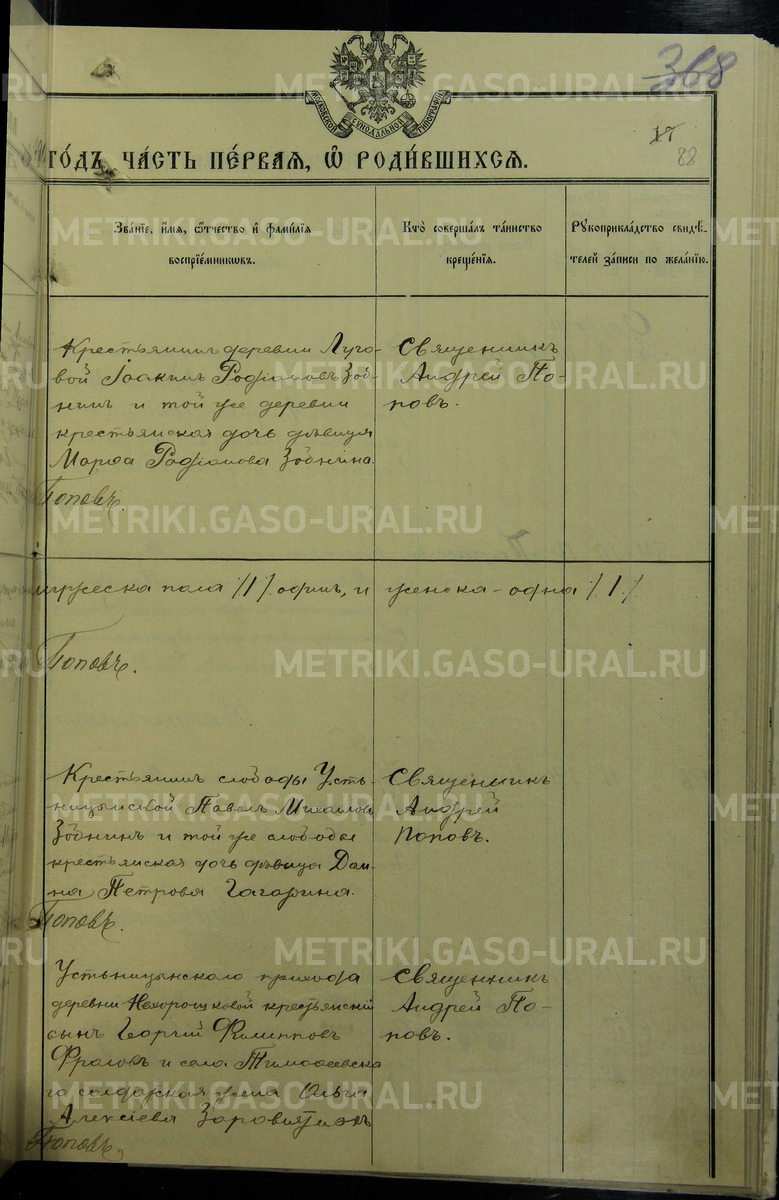 368
МОСКОВСКОЙ СУНОДАЛЬНОЙ ТИПОГРАФІИ
17
88
го́дъ, ча́сть пе́рвая, ѡ҆ роди́вшихсѧ.
Зва́нїе, и҆́мѧ, ѻ҆́тчество и҆ фами́лїѧ
воспрїе́мникѡвъ.
Кто̀ соверша́лъ та́инство
креще́нїѧ.
Рꙋкоприкла́дство свидѣ́-
телей за́писи по жела́нїю.
Крестьянинъ деревни Луго-
вой Іоакимъ Родіоновъ Зоб-
нинъ и той же деревни
крестьянская дочь дѣвица
Марѳа Родіонова Зобнина.
Поповъ.
Священникъ
Андрей По-
повъ.
мужеска пола /1/ одинъ, и женска - одна /1/.
Поповъ.
Крестьянинъ слободы Усть-
ницынской Павелъ Михаиловъ
Зобнинъ и той же слободы
крестьянская дочь дѣвица Дом-
на Петрова Гагарина.
Поповъ.
Священникъ
Андрей
Поповъ.
Устьницынскаго прихода
деревни Нехорошковой крестьянскій
сынъ Георгій Филипповъ
Фроловъ и села Тимоѳеевска-
го солдатская жена Ольга
Алексіева
Поповъ.
Священникъ
Андрей По-
повъ.
METRIKI.GASO-URAL.RU